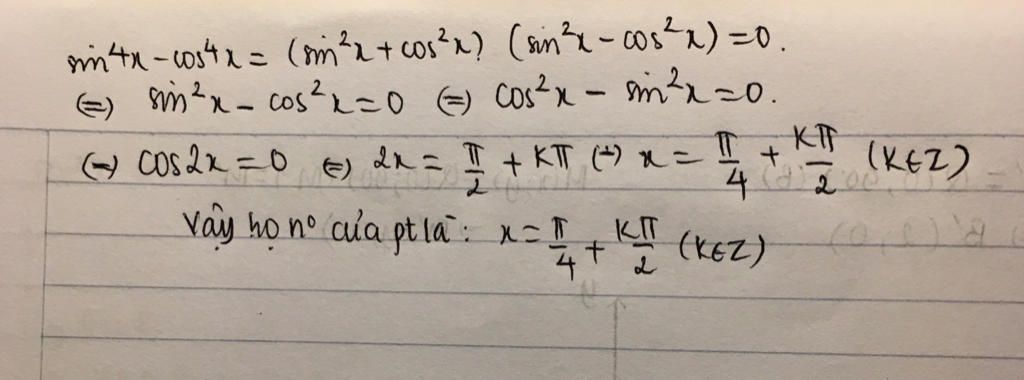 sin⁴x - cos⁴x = (sin²x + cos²x) (sin²x - cos²x) = 0.
⇔ sin²x - cos²x = 0 ⇔ cos²x - sin²x = 0.
⇔ cos2x = 0 ⇔ 2x = π/2 + Kπ ⇔ x = π/4 + Kπ/2 (K∈Z)
Vậy họ nº của pt là: x = π/4 + Kπ/2 (K∈Z)